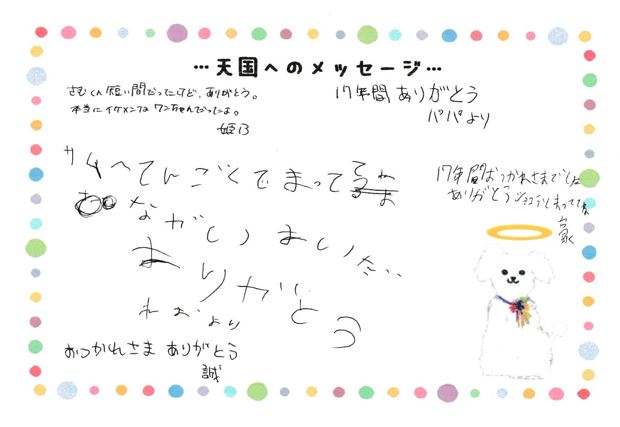 …天国へのメッセージ…
さむくん短い間だったけど、ありがとう。
本当にイケメンな ワンちゃんだったよ。
17年間 ありがとう
パパより
サムへてんごくでまってるね
ながい あいだ
ありがとう
より
17年間おつかれさまでした
ありがとう
おつかれさま ありがとう
誠